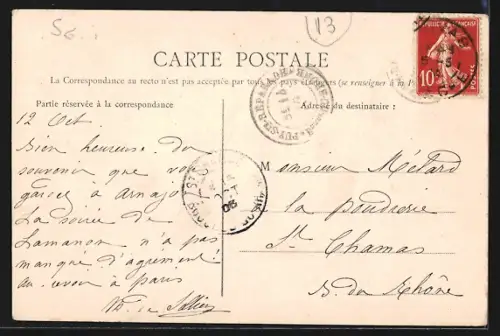 56.
13
CARTE POSTALE
La Correspondance au recto n'est pas acceptée par tous les pays étrangers (se renseigner à la
Partie réservée à la correspondance
Adresse du destinataire :
REPUBLIQUE FRANÇAISE
10
POSTES
PUY-STE-REPARADE
12 Oct.
Bien heureuse du
souvenir que vous
gardez à
La soirée de
Lamanon n'a pas
manqué d'agrément
au revoir à Paris
de
Monsieur Métard
la poudrerie
St Chamas
B. du Rhône